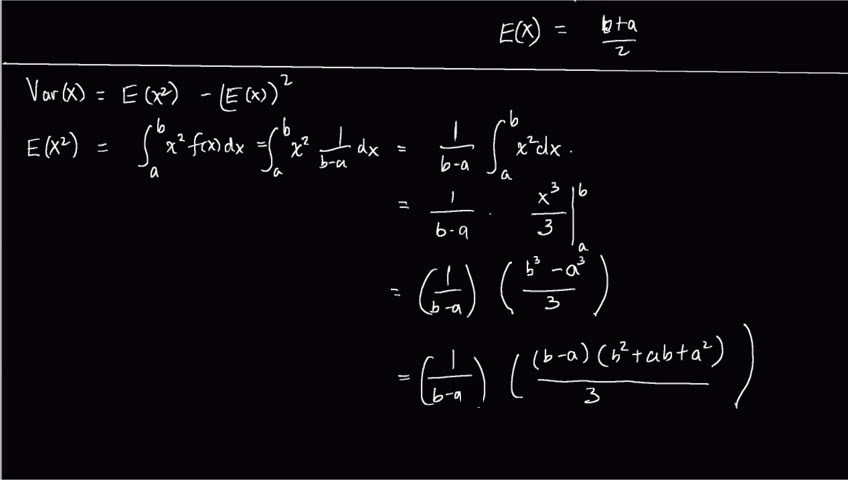 E(X) = (b+a)/2
Var(X) = E(X²) - (E(X))²
E(X²) = ∫_a^b x² f(x) dx = ∫_a^b x² 1/(b-a) dx = 1/(b-a) ∫_a^b x² dx.
= 1/(b-a) · x³/3 |_a^b
= (1/(b-a)) ((b³ - a³)/3)
= (1/(b-a)) ((b-a)(b²+ab+a²)/3)